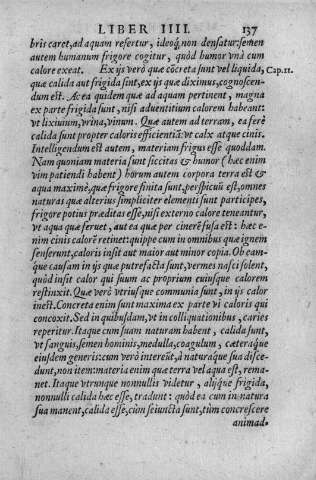 LIBER IIII. 137
bris caret, ad aquam refertur, ideoq́; non densatur: semen
autem humanum frigore cogitur, quòd humor vnà cum
calore exeat. Ex ijs verò quæ cõcreta sunt vel liquida, Cap. 11.
quæ calida aut frigida sint, ex ijs quæ diximus, cognoscen-
dum est. Ac ea quidem quæ ad aquam pertinent, magna
ex parte frigida sunt, nisi aduentitium calorem habeant:
vt lixiuium, vrina, vinum. Quæ autem ad terram, ea ferè
calida sunt propter caloris efficientiã: vt calx atque cinis.
Intelligendum est autem, materiam frigus esse quoddam.
Nam quoniam materia sunt siccitas & humor (hæc enim
vim patiendi habent) horum autem corpora terra est &
aqua maximè, quæ frigore finita sunt, perspicuũ est, omnes
naturas quæ alterius simpliciter elementi sunt participes,
frigore potius præditas esse, nisi externo calore teneantur,
vt aqua quæ feruet, aut ea quæ per cinerẽ fusa est: hæc e-
nim cinis calorẽ retinet: quippe cum in omnibus quæ ignem
senserunt, caloris insit aut maior aut minor copia. Ob eam-
que causam in ijs quæ putrefacta sunt, vermes nasci solent,
quòd insit calor qui suum ac proprium cuiusque calorem
restinxit. Quæ verò vtriusque communia sunt, in ijs calor
inest. Concreta enim sunt maxima ex parte vi caloris qui
concoxit. Sed in quibusdam, vt in colliquationibus, caries
reperitur. Itaque cum suam naturam habent, calida sunt,
vt sanguis, semen hominis, medulla, coagulum, cæteraque
eiusdem generis: cum verò intereũt, à naturaque sua disce-
dunt, non item: materia enim quæ terra vel aqua est, rema-
net. Itaque vtrunque nonnullis videtur, alijque frigida,
nonnulli calida hæc esse, tradunt: quòd ea cum in natura
sua manent, calida esse, cùm seiuncta sunt, tùm concrescere
animad-